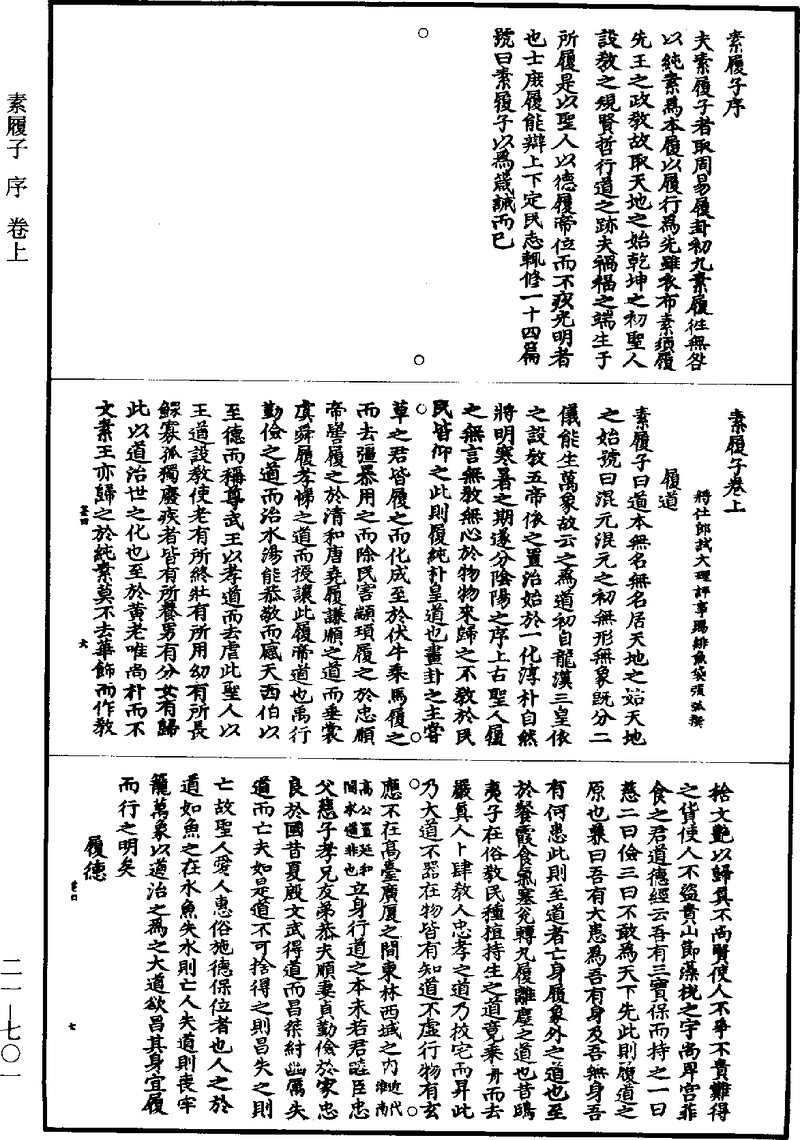 素履子 序 卷上
二一—七〇一
素履子序
夫素履子者取周易履卦初九素履往無咎
以純素爲本履以履行爲先雖衣布素須履
先王之政教故取天地之始乾坤之初聖人
設教之規賢哲行道之跡夫禍福之端生于
所履是以聖人以德履帝位而不疚光明者
也士庶履能辯上下定民志輒修一十四篇
號曰素履子以爲箴誡而已
素履子卷上
將仕郎試大理評事賜緋魚袋張弧撰
履道
素履子曰道本無名無名居天地之始天地
之始號曰混元混元之初無形無象旣分二
儀能生萬象故云之爲道初自龍漢三皇依
之設教五帝依之置治始於一化淳朴自然
將明寒暑之期遂分陰陽之序上古聖人履
之無言無教無心於物物來歸之不教於民
民皆仰之此則履純朴皇道也畫卦之主嘗
草之君皆履之而化成至於伏牛乘馬履之
而去彊暴用之而除民害顓頊履之於忠順
帝嚳履之於清和唐堯履謙順之道而垂裳
虞舜履孝悌之道而授讓此履帝道也禹行
勤儉之道而治水湯能恭敬而感天西伯以
至德而稱尊武王以孝道而去虐此聖人以
王道設教使老有所終壯有所用幼有所長
鰥寡孤獨廢疾者皆有所養男有分女有歸
此以道治世之化也至於黃老唯尚朴而不
文素王亦歸之於純素莫不去華飾而作教
六
捨文艷以歸真不尚賢使人不爭不貴難得
之貨使人不盜賁山節藻梲之宇尚卑宮菲
食之君道德經云吾有三寶保而持之一曰
慈二曰儉三曰不敢為天下先此則履道之
原也義曰吾有大患為吾有身及吾無身吾
有何患此則至道者亡身履象外之道也至
於餐霞食氣塞兌轉丸履離塵之道也昔鴟
夷子在俗教民種植持生之道竟乘舟而去
嚴真人卜肆教人忠孝之道乃拔宅而昇此
乃大道不器在物皆有知道不虛行物有玄
應不在高臺廣厦之間東林西城之内近代尚
高公置延和閣求道非也立身行道之本未若君聖臣忠
父慈子孝兄友弟恭夫順妻貞勤儉於家忠
良於國昔夏殷文武得道而昌桀紂幽厲失
道而亡夫如是道不可捨得之則昌失之則
亡故聖人愛人惠俗施德保位者也人之於
道如魚之在水魚失水則亡人失道則喪牢
籠萬象以道治之為之大道欲昌其身宜履
而行之明矣
履德
七